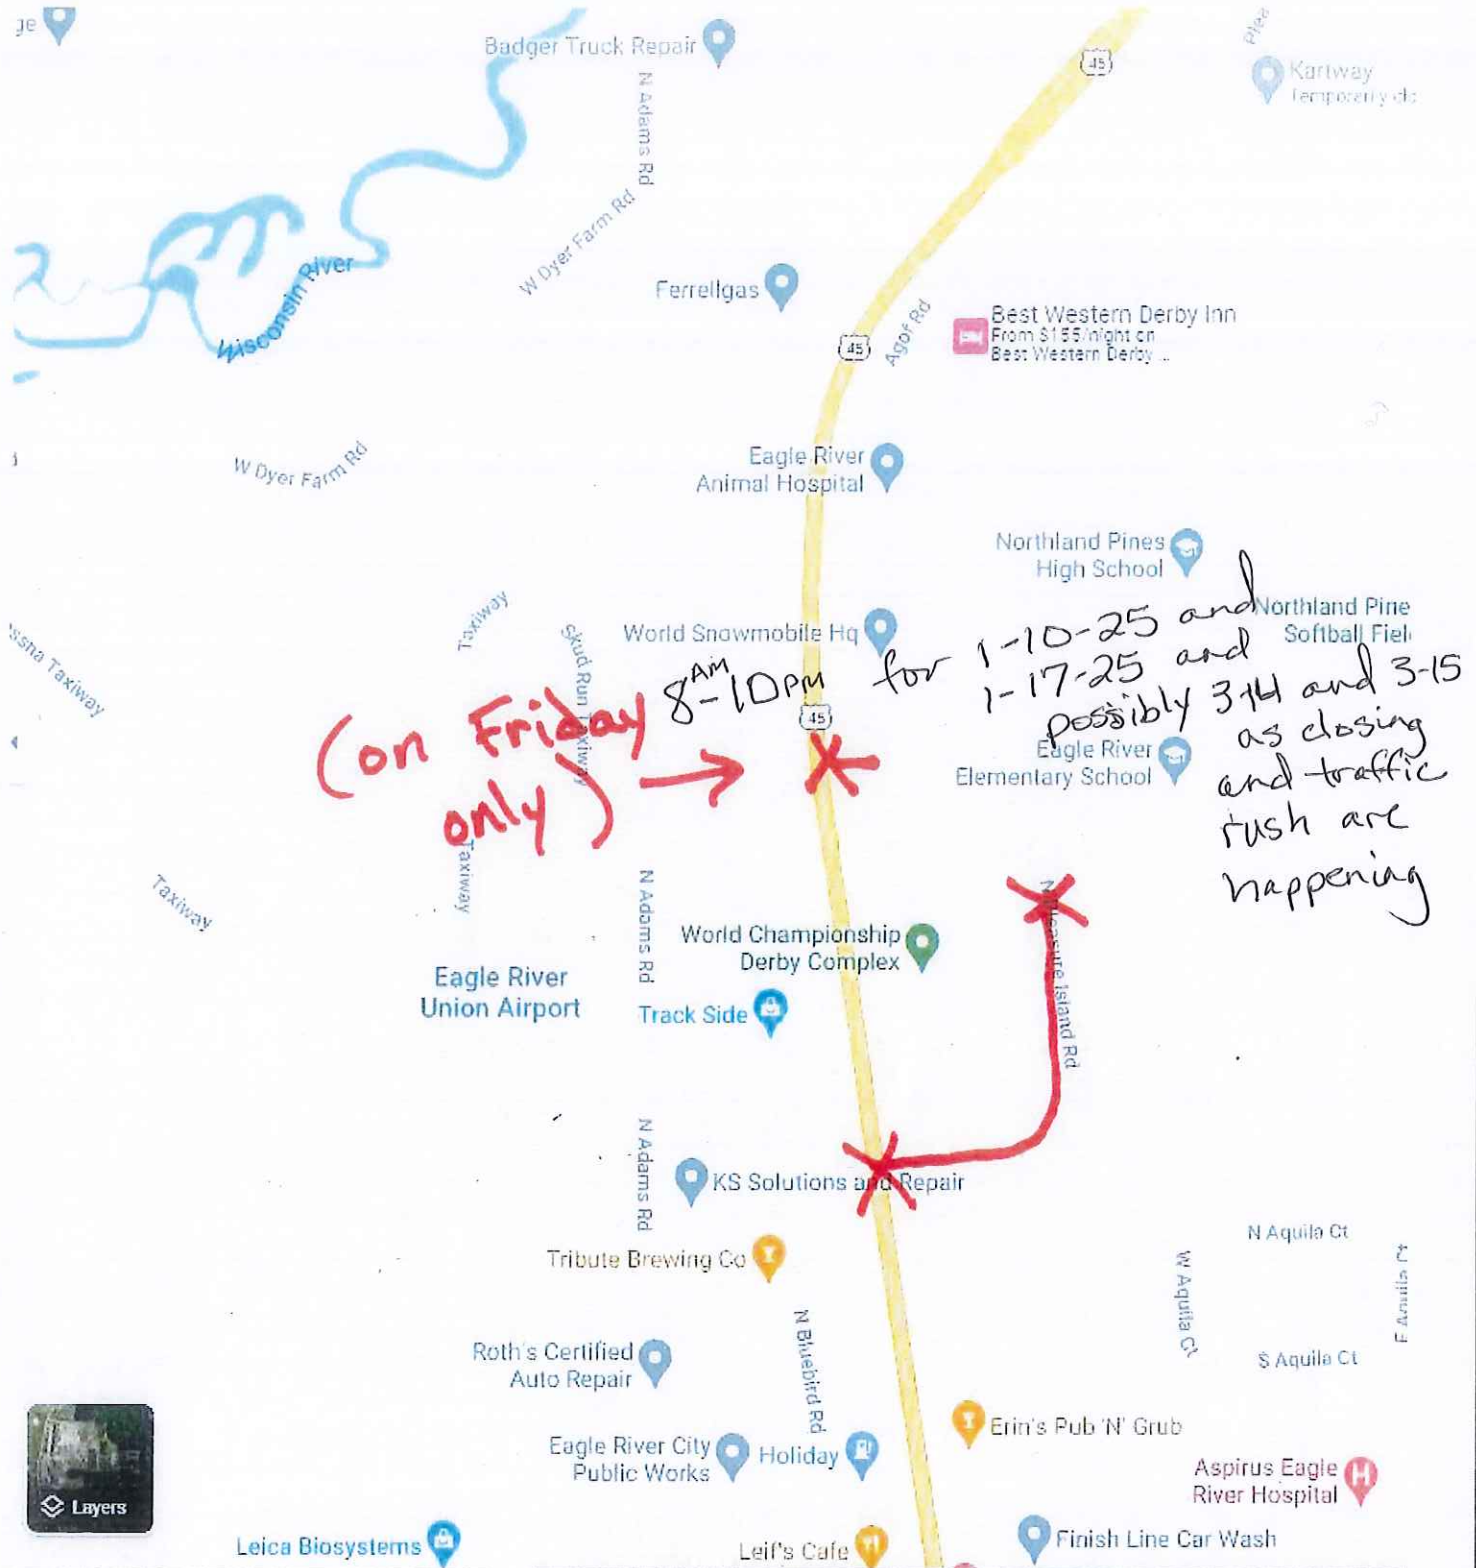 ge
Badger Truck Repair
N Adams Rd
45
Kartway
W Dyer Farm Rd
Wisconsin River
Ferrellgas
45
Agof Rd
Best Western Derby Inn
From $155/night on
Best Western Derby ...
W Dyer Farm Rd
Eagle River
Animal Hospital
Northland Pines
High School
Northland Pine
Softball Fiel
Taxiway
World Snowmobile Hq
Skud Run Taxiway
ssna Taxiway
8 AM - 10 PM for 1-10-25 and
1-17-25 and
possibly 3-14 and 3-15
as closing
and traffic
rush are
happening
45
(on Friday
only)
Eagle River
Elementary School
Taxiway
Taxiway
N Adams Rd
World Championship
Derby Complex
N Pleasure Island Rd
Eagle River
Union Airport
Track Side
N Adams Rd
KS Solutions and Repair
Tribute Brewing Co
N Aquila Ct
W Aquila Ct
E Aquila Ct
S Aquila Ct
N Bluebird Rd
Roth's Certified
Auto Repair
Erin's Pub 'N' Grub
Eagle River City
Public Works
Holiday
Aspirus Eagle
River Hospital
Layers
Leica Biosystems
Leif's Cafe
Finish Line Car Wash